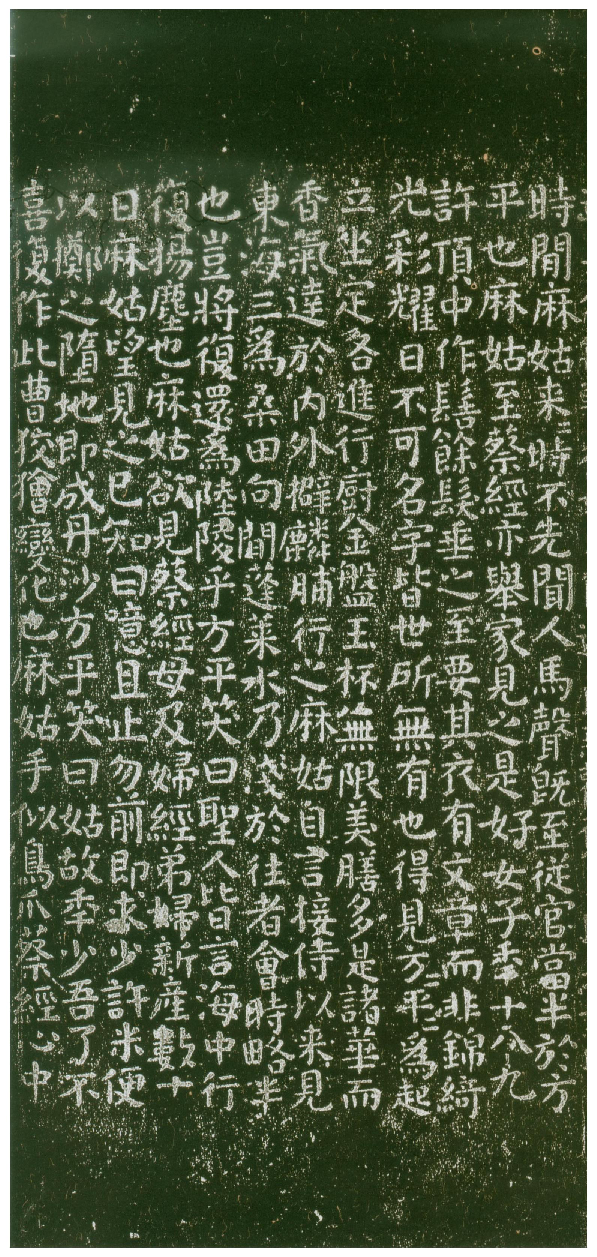 時間麻姑来〻時不先聞人馬聲既至從官當半於方
平也麻姑至蔡經亦舉家見之是好女子秊十八九
許頂中作髻餘髮垂之至要其衣有文章而非錦綺
光彩耀日不可名字皆世所無有也得見方平〻爲起
立坐定各進行廚金盤玉杯無限美膳多是諸華而
香氣達於内外擗麟脯行之麻姑自言接侍以来見
東海三爲桑田向間蓬萊水乃淺於往者會時略半
也豈將復還爲陸陵乎方平笑曰聖人皆言海中行
復揚塵也麻姑欲見蔡經母及婦經弟婦新產數十
日麻姑望見之已知曰噫且止勿前即求少許米便
以擲之墮地即成丹沙方平笑曰姑故秊少吾了不
喜復作此曹狡獪變化也麻姑手似鳥爪蔡經心中